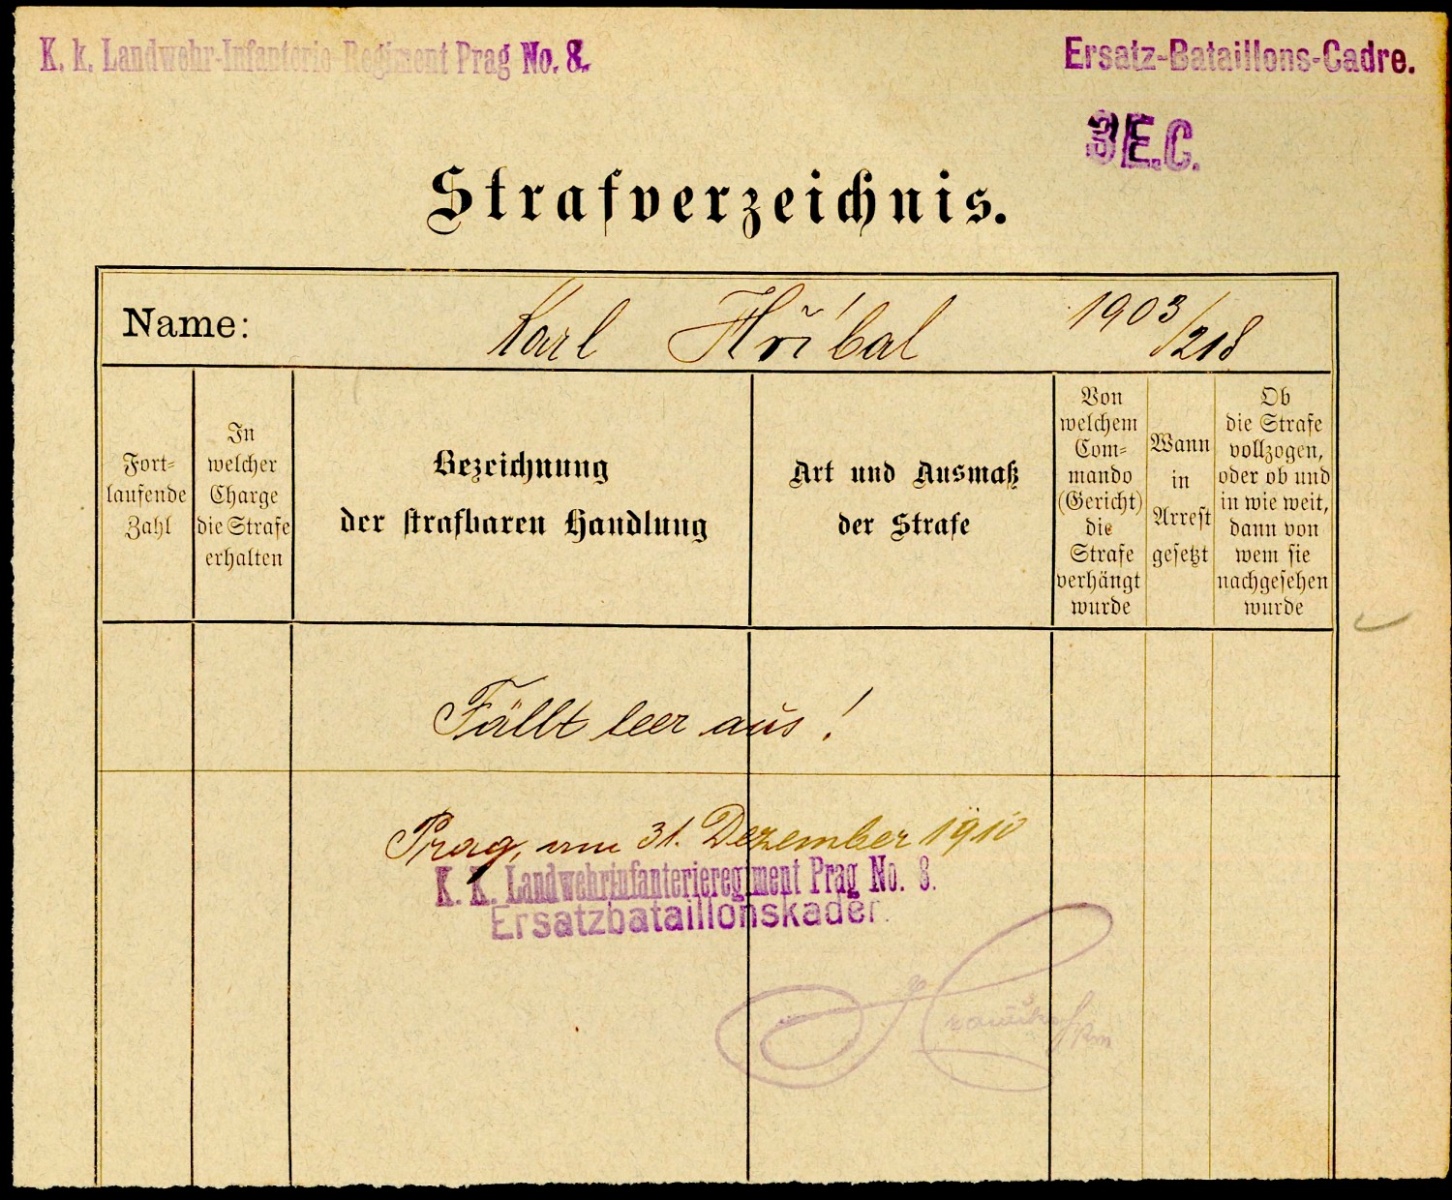 K. k. Landwehr-Infanterie-Regiment Prag No. 8.
Ersatz-Bataillons-Cadre.
3 E.C.
Strafverzeichnis.
Name: Karl Hřibal 1903/218
Fort-
laufende
Zahl
In
welcher
Charge
die Strafe
erhalten
Bezeichnung
der strafbaren Handlung
Art und Ausmaß
der Strafe
Von
welchem
Com-
mando
(Gericht)
die
Strafe
verhängt
wurde
Wann
in
Arrest
gesetzt
Ob
die Strafe
vollzogen,
oder ob und
in wie weit,
dann von
wem sie
nachgesehen
wurde
Fällt leer aus!
Prag, am 31. Dezember 1910
K. K. Landwehrinfanterieregiment Prag No. 8.
Ersatzbataillonskader.